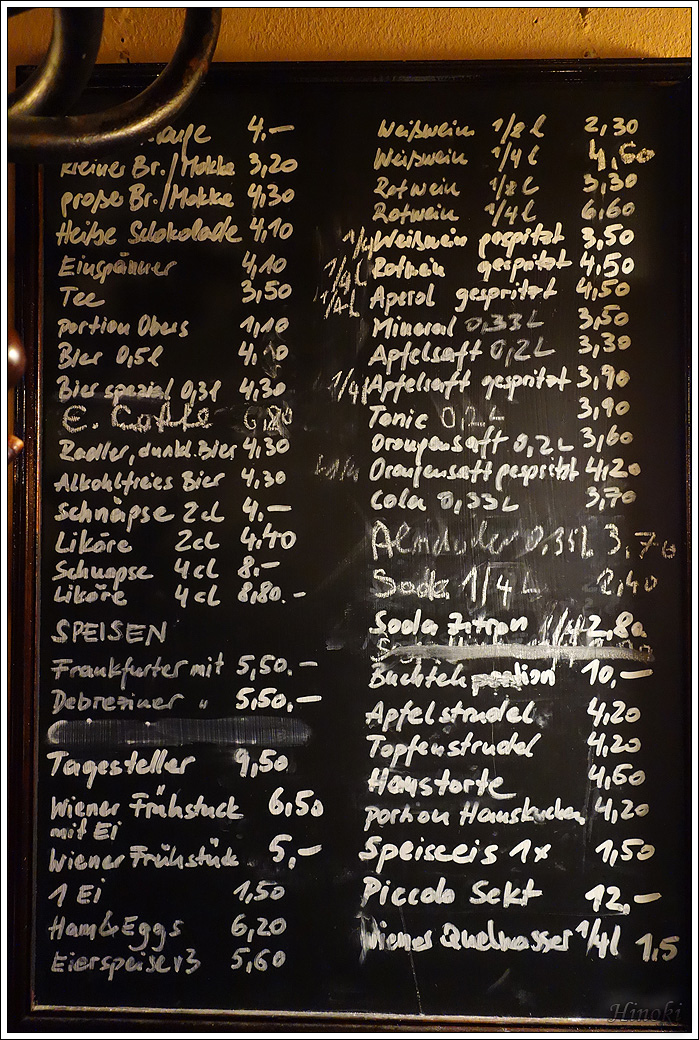 4.—
kleiner Br./Mokka 3,20
großer Br./Mokka 4,30
Heiße Schokolade 4,10
Einspänner 4,10
Tee 3,50
portion Obers 1,10
Bier 0,5l 4,10
Bier spezial 0,3l 4,30
E. Coffee 6,80
Radler, dunkl. Bier 4,30
Alkoholfreies Bier 4,30
Schnäpse 2cl 4.—
Liköre 2cl 4.40
Schnapse 4cl 8.—
Liköre 4cl 8,80.—
SPEISEN
Frankfurter mit 5,50.—
Debreziner " 5,50.—
Tagesteller 9,50
Wiener Frühstuck 6,50
mit Ei
Wiener Frühstück 5,—
1 Ei 1,50
Ham & Eggs 6,20
Eierspeise v3 5,60
Weißwein 1/8 l 2,30
Weißwein 1/4 l 4,60
Rotwein 1/8 l 3,30
Rotwein 1/4 l 6,60
1/4 Weißwein gespritzt 3,50
1/4 l Rotwein gespritzt 4,50
1/4 l Aperol gespritzt 4,50
Mineral 0,33L 3,50
Apfelsaft 0,2L 3,30
1/4l Apfelsaft gespritzt 3,90
Tonic 0,2L 3,90
Orangensaft 0,2L 3,60
1/4 Orangensaft gespritzt 4,20
Cola 0,33L 3,70
Almdudler 0,35L 3,70
Soda 1/4L 2,40
Soda Zitron 1/4 2,80
Buchteln portion 10,—
Apfelstrudel 4,20
Topfenstrudel 4,20
Haustorte 4,60
portion Hauskuchen 4,20
Speiseeis 1x 1,50
Piccolo Sekt 12,—
Wiener Quellwasser 1/4l 1,5
Hinoki